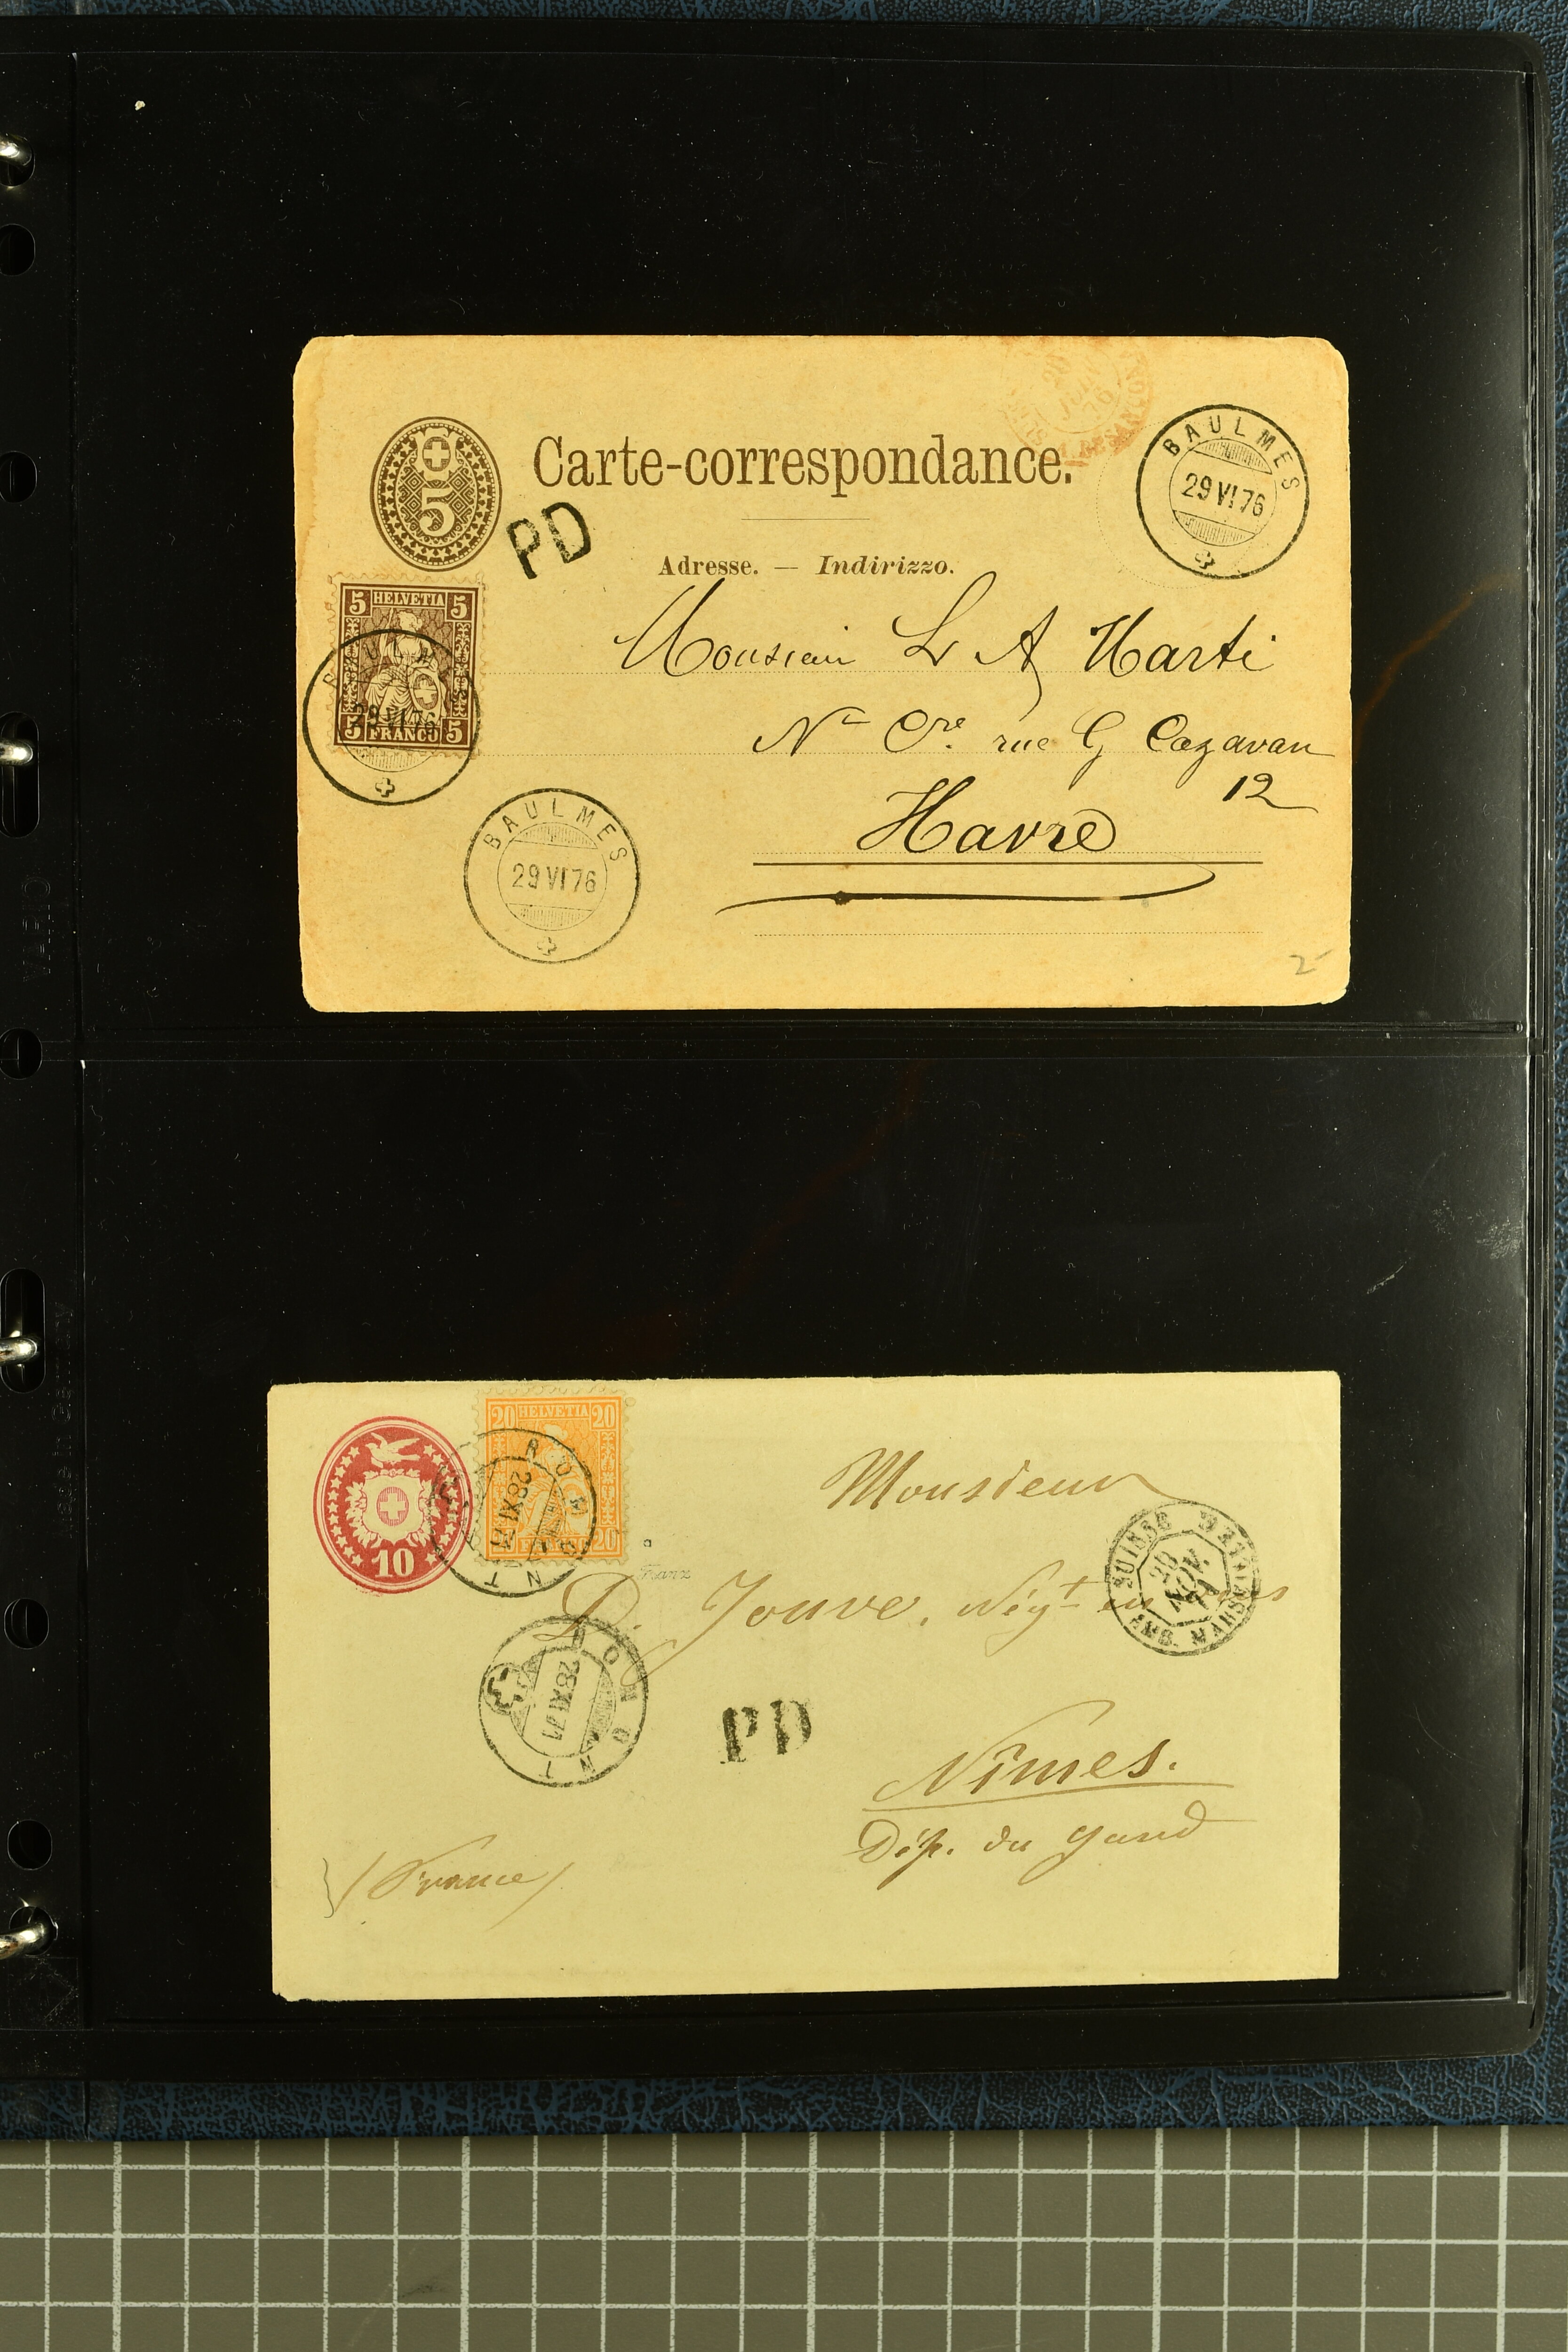 5
Carte-correspondance.
PD
BAULMES
29 VI 76
Adresse. — Indirizzo.
5 HELVETIA 5
5 FRANCO 5
29 VI 76
Monsieur L A Marti
Nº rue G Cazavan
12
Havre
BAULMES
29 VI 76
2
VARIO
Made in Germany
10
20 HELVETIA 20
20
ROMONT
28 XI 71
Franz
Monsieur
SUISSE
28 NOV. 71
AMB. MARSEILLE
D. Jouve, Négt en
ROMONT
28 XI 71
PD
Nîmes.
Dép. du Gard
(France)